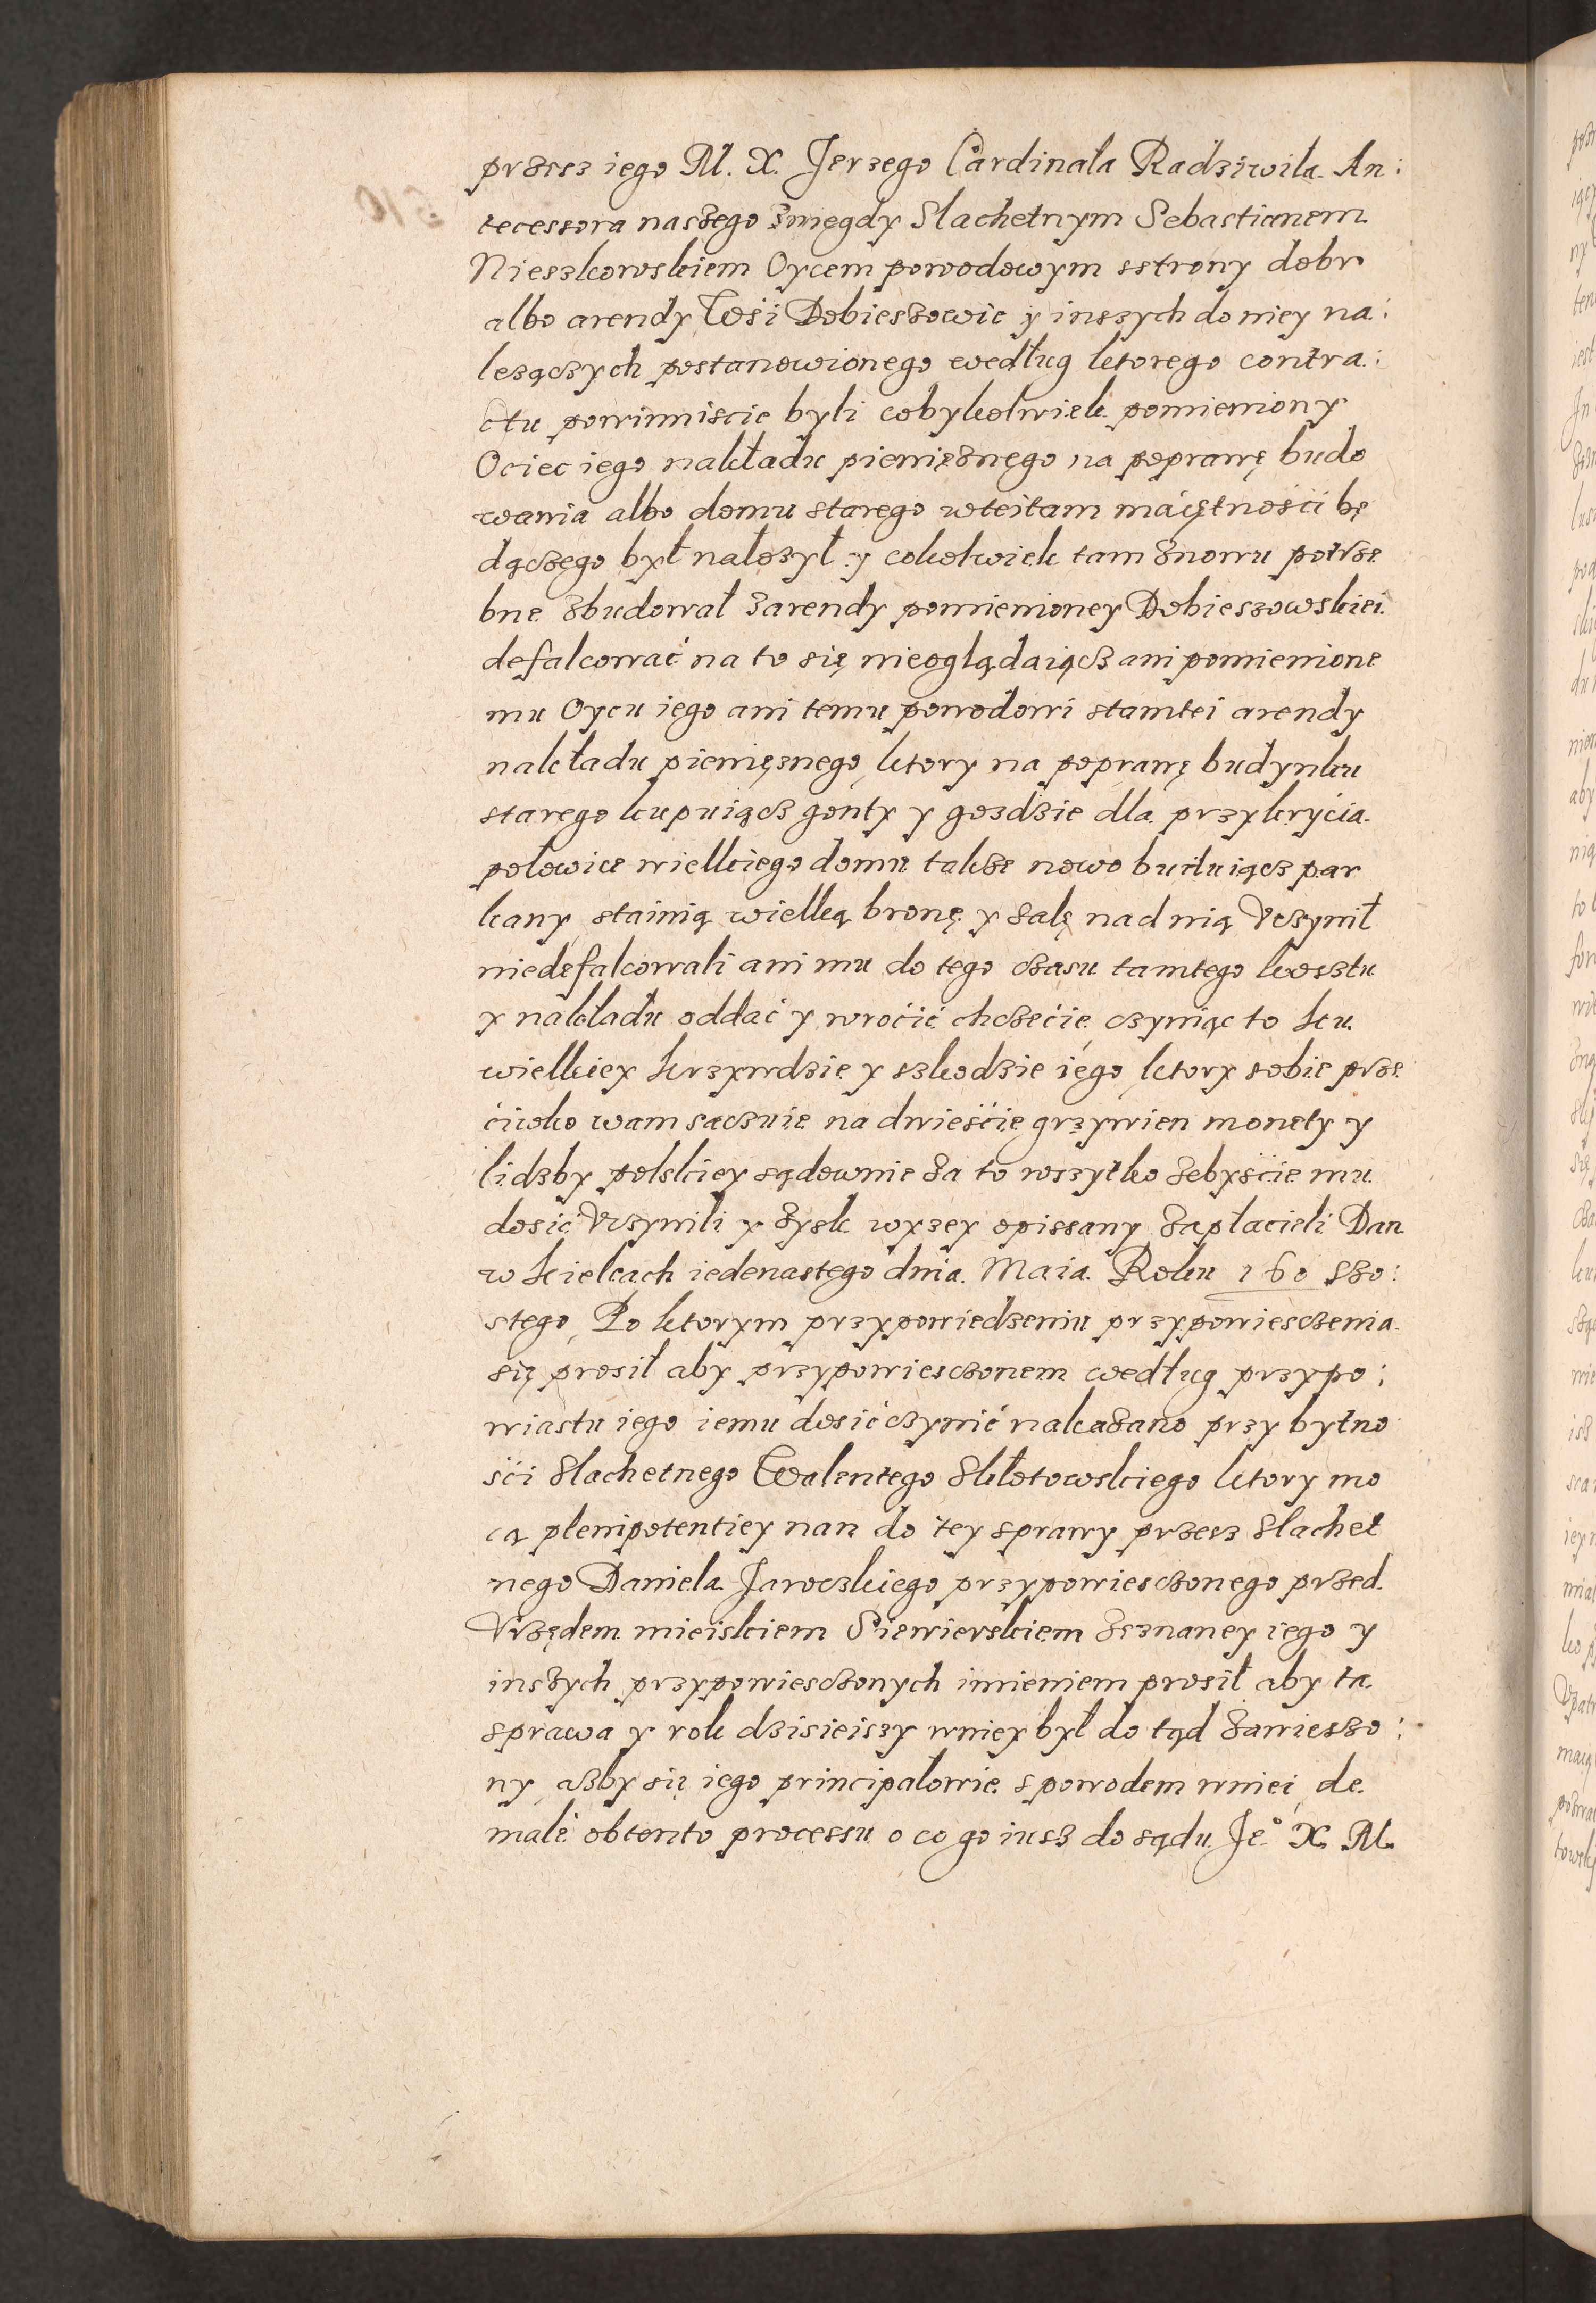 przesz iego M. X. Jerzego Cardinala Radziwila. An:
tecessora naszego zmięgdy Slachetnym Sebastianem
Nieszkowskiem Oycem powodowym sstrony dobr
albo arendy Wśi Dobieszowic y inszych do niey na:
lezączych postanowionego według ktorego contra:
ctu powinniscie byli cobykolwiek pomieniony
Ociec iego nakładu pieniężnego na poprawę budo
wania albo domu starego wteitam maiętnośći bę
dączego był nałozył y cokolwiek tam znowu potrze
bne zbudował zarendy pomienioney Dobieszowskiei
defalcować na to się nieoglądaiącz ani pomienione
mu Oycu iego ani temu powodowi stamtei arendy
nakładu pienięznego, ktory na poprawę budynku
starego kupuiącz gonty y gozdzie dla przykryćia
połowice wielkiego domu takze nowo buduiącz par
kany stainią wielką bronę y salę nad nią Vczynił
niedefalcowali ani mu do tego czasu tamtego kosztu
y nakładu oddać y wroćić chczećie, czyniąc to ku
wielkiey krzywdzie y szkodzie iego, ktory sobie prze
ćiwko wam sacżuie na dwieśćie grzywien monety y
lidzby polskiey sądownie za to wszytko zebyśćie mu
dosić Vczynili y zysk wyzey opissany zapłacieli Dan
w Kielcach iedenastego dnia. Maia. Roku 160 szo:
stego, Po ktorym przypowiedzeniu przypowiesczenia
się prosił aby przypowiesczonem według przypo:
wiastu iego iemu dosić czynić nakazano przy bytno
śći Slachetnego Walentego Skłotowskiego ktory mo
cą plenipotentiey nan do tey sprawy przesz Slachet
nego Daniela Jaroczkiego przypowiesczonego przed
Vrzędem mieiskiem Siewierskiem zeznaney iego y
inszych przypowiesczonych imieniem prosił aby ta
sprawa y rok dzisieiszy wniey był do tąd zawieszo:
ny, ażby się iego principałowie s powodem wniei, de
małe obtento processu o co go iusz do sądu Je° X. M.